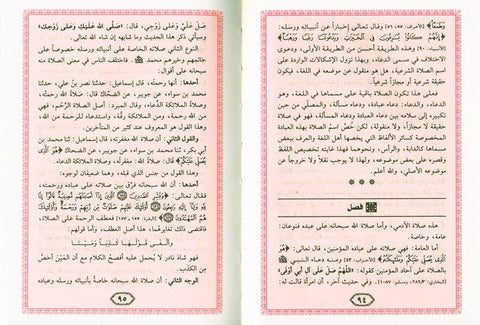 وَطَمَعًا﴾ [الأعراف: ٥٥، ٥٦] وقال تعالى إخباراً عن أنبيائه ورسله:
﴿إِنَّهُمْ كَانُوا يُسَارِعُونَ فِي الْخَيْرَاتِ وَيَدْعُونَنَا رَغَبًا وَرَهَبًا﴾
[الأنبياء: ٩٠] وهذه الطريقة أحسن من الطريقة الأولى، ودعوى
الاختلاف في مسمى الدعاء، وبهذا تزول الإشكالات الواردة على
اسم الصلاة الشرعية، هل هو منقول عن موضعه في اللغة، فيكون
حقيقة شرعية أو مجازاً شرعياً.
فعلى هذا تكون الصلاة باقية على مسماها في اللغة، وهو
الدعاء، والدعاء: دعاء عبادة، ودعاء مسألة، والمصلّي من حين
تكبيره إلى سلامه بين دعاء العبادة ودعاء المسألة، فهو في صلاة
حقيقة لا مجازاً، ولا منقولة، لكن خُصّ اسم الصلاة بهذه العبادة
المخصوصة كسائر الألفاظ التي يخصها أهل اللغة والعرف ببعض
مسماها كالدابة، والرأس، ونحوهما فهذا غايته تخصيص اللفظ
وقصره على بعض موضوعه، ولهذا لا يوجب نقلاً ولا خروجاً عن
موضوعه الأصلي، والله أعلم.
* * *
فصل
هذه صلاة الآدمي، وأما صلاة الله سبحانه على عبده فنوعان:
عامة، وخاصة.
أما العامة: فهي صلاته على عباده المؤمنين، قال تعالى: ﴿هُوَ
الَّذِي يُصَلِّي عَلَيْكُمْ وَمَلَائِكَتُهُ﴾ [الأحزاب: ٤٣] ومنه دعاء النبي ﷺ
بالصلاة على آحاد المؤمنين كقوله: «اللَّهُمَّ صَلِّ عَلَى آلِ أَبِي أَوْفَى»
وفي حديث آخر أن امرأة قالت له:
٩٤
صَلِّ عَلَيَّ وَعَلَى زَوْجِي، قال: «صَلَّى اللهُ عَلَيْكِ وَعَلَى زَوْجِكِ»
وسيأتي ذكر هذا الحديث وما شابهه إن شاء الله تعالى.
النوع الثاني صلاته الخاصة على أنبيائه ورسله خصوصاً على
خاتمهم وخيرهم محمد ﷺ، فاختلف الناس في معنى الصلاة منه
سبحانه على أقوال:
أحدها: أنها رحمته، قال إسماعيل: حدثنا نصر بن علي، حدثنا
محمد بن سواء، عن جويبر، عن الضحّاك قال: صلاة الله رحمته،
وصلاة الملائكة الدُّعاء، وقال المبرد: أصل الصلاة الرُّحم، فهي
من الله رحمة، ومن الملائكة رقّة، واستدعاء للرحمة من الله،
وهذا القول هو المعروف عند كثير من المتأخرين.
والقول الثاني: أن صلاة الله مغفرته، قال إسماعيل: ثنا محمد بن
أبي بكر، ثنا محمد بن سواء، عن جويبر، عن الضحاك ﴿هُوَ الَّذِي
يُصَلِّي عَلَيْكُمْ﴾ قال: صلاة الله: مغفرته، وصلاة الملائكة الدعاء.
وهذا القول من جنس الذي قبله، وهما ضعيفان لوجوه:
أحدها: أن الله سبحانه فرّق بين صلاته على عباده ورحمته،
فقال تعالى: ﴿وَبَشِّرِ الصَّابِرِينَ ۝ الَّذِينَ إِذَا أَصَابَتْهُمْ مُصِيبَةٌ قَالُوا إِنَّا
لِلَّهِ وَإِنَّا إِلَيْهِ رَاجِعُونَ ۝ أُولَئِكَ عَلَيْهِمْ صَلَوَاتٌ مِنْ رَبِّهِمْ وَرَحْمَةٌ وَأُولَئِكَ
هُمُ الْمُهْتَدُونَ﴾ [البقرة: ١٥٥، ١٥٧] فعطف الرحمة على الصلاة،
فاقتضى ذلك تغايرهما، هذا أصل العطف، وأما قولهم:
وألفى قولها كذبا ومينا
فهو شاذ نادر لا يُحمل عليه أفصح الكلام مع أن المَيْنَ أخصّ
من الكذب.
الوجه الثاني: أن صلاة الله سبحانه خاصة بأنبيائه ورسله وعباده
٩٥